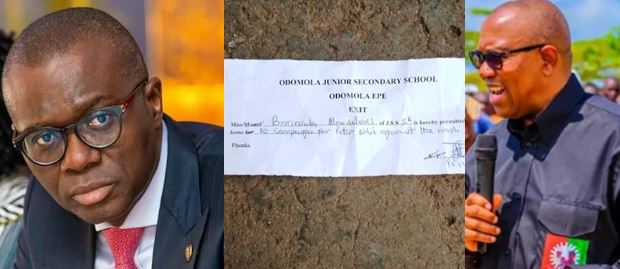 ODOMOLA JUNIOR SECONDARY SCHOOL
ODOMOLA EPE
EXIT
Miss/Master of J.S.S. 2B is hereby permitted
home for to campaign for Peter Obi against the
Thanks.